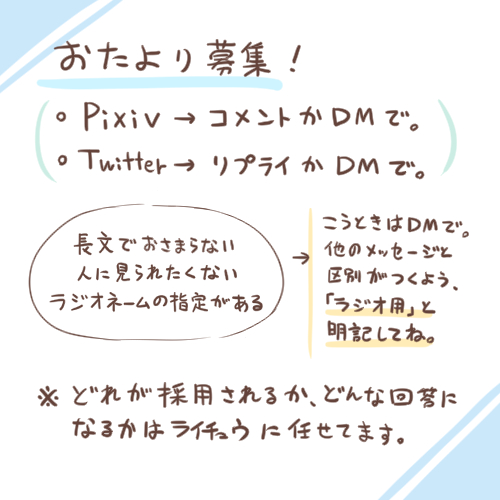 おたより募集！
○ Pixiv → コメントかDMで。
○ Twitter → リプライかDMで。
長文でおさまらない
人に見られたくない
ラジオネームの指定がある
→
こうときはDMで。
他のメッセージと
区別がつくよう、
「ラジオ用」と
明記してね。
※ どれが採用されるか、どんな回答に
なるかはライチュウに任せてます。